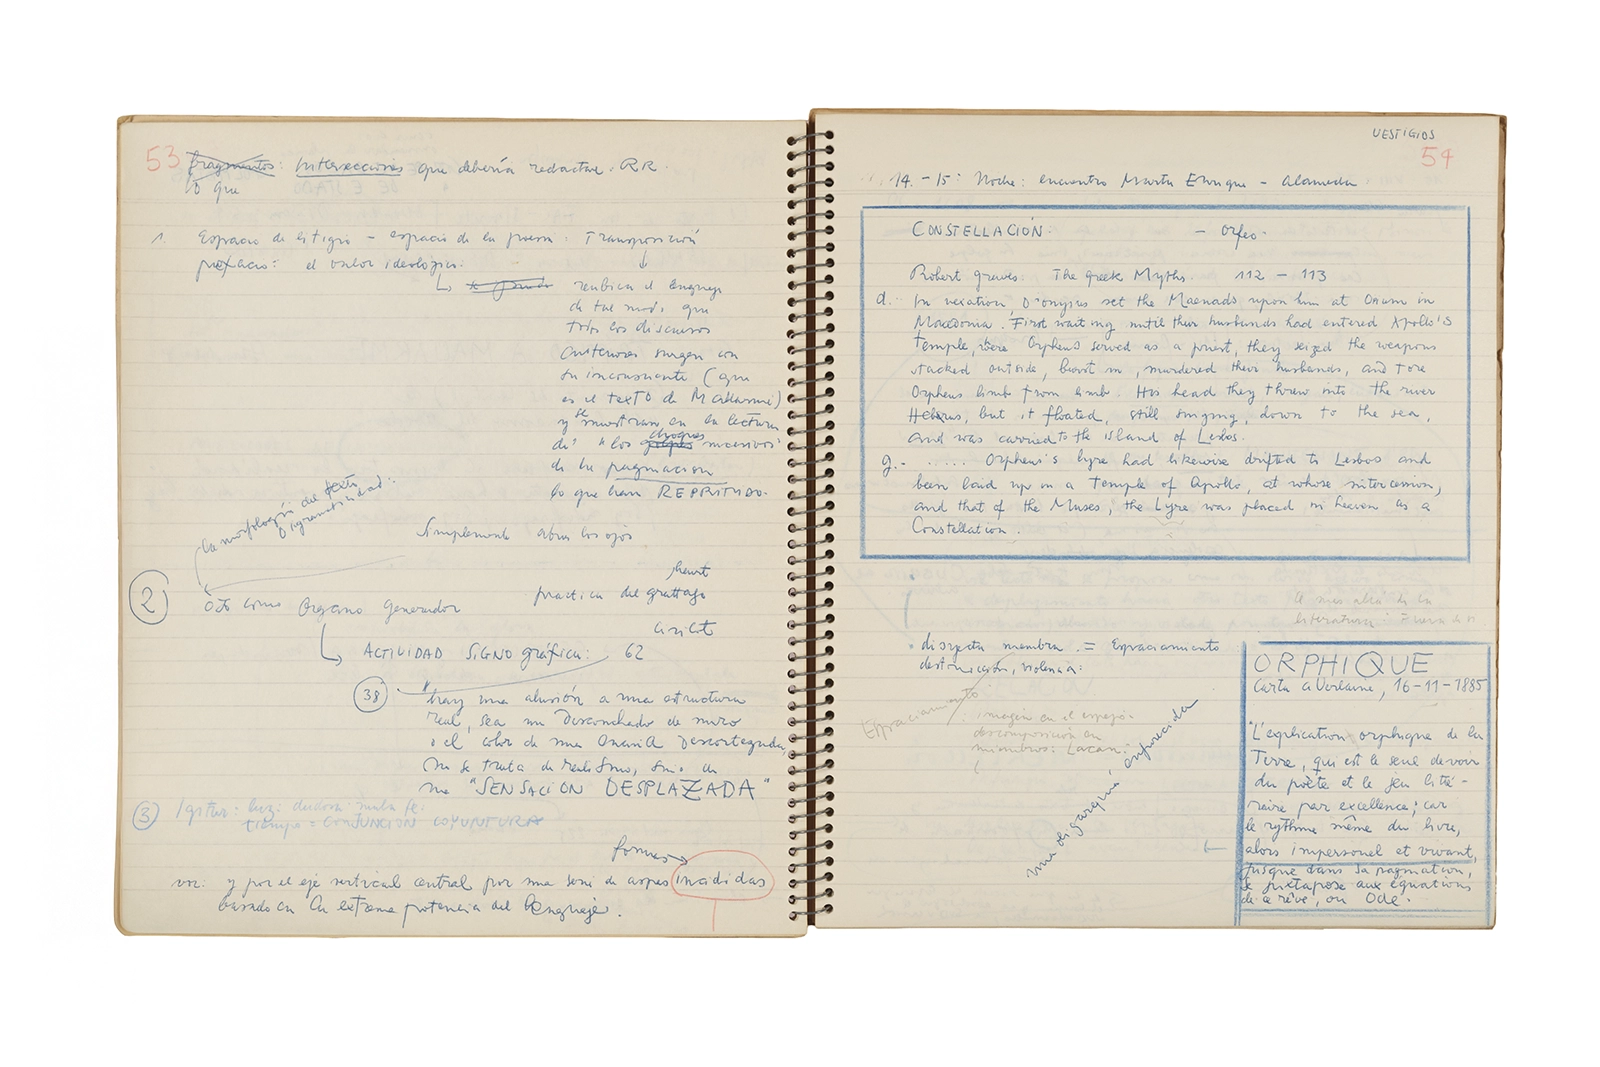 53
fragmentos: Intersecciones que debería redactar. RR.
lo que
1. Espacio de litigio – espacio de la poesía: Transposición
prefacio: el valor ideológico.
reubica el lenguaje
de tal modo que
todos los discursos
anteriores surgen con
su inconsciente (que
es el texto de Mallarmé)
y se muestran en la lectura
de: "los golpes choques sucesivos"
de la paginación
lo que han REPRIMIDO.
la morfología del texto
Simplemente abrir los ojos
2
Ojo como Organo Generador
practica del grattage
ACTIVIDAD SIGNO gráfica: 62
38
"hay una alusión a una estructura
real, sea un Desconchado de muro
o el color de una Desconchada,
no se trata de realismo, sino de
una "SENSACIÓN DESPLAZADA"
3
Igitur: luz: dudosa
tiempo = CONJUNCION COYUNTURA
formas
voz: y por el eje vertical central por una serie de incididas
basado en la extrema potencia del lenguaje.
VESTIGIOS
54
14. – 15: Noche: encuentro Marta Enrique – Alameda
CONSTELLACIÓN. – Orfeo.
Robert Graves: The Greek Myths 112 – 113
d. In vexation, Dionysus set the Maenads upon him at Deium in
Macedonia. First waiting until their husbands had entered Apollo's
Temple, where Orpheus served as a priest, they seized the weapons
stacked outside, burst in, murdered their husbands, and tore
Orpheus limb from limb. His head they threw into the river
Hebrus, but it floated, still singing, down to the sea,
and was carried to the island of Lesbos.
g.- ..... Orpheus's lyre had likewise drifted to Lesbos and
been laid up in a Temple of Apollo, at whose intercession,
and that of the Muses, the Lyre was placed in heaven as a
Constellation.
el más allá de la
literatura:
disjecta membra. = Espaciamiento
destrucción, violencia:
Espaciamiento: imagen en el espejo:
descomposición en
miembros: Lacan:
ORPHIQUE
Carta a Verlaine, 16-11-1885
"L'explication orphique de la
Terre, qui est le seul devoir
du poète et le jeu litté-
raire par excellence; car
le rythme même du livre,
alors impersonel et vivant,
jusque dans sa pagination,
se juxtapose aux équations
de ce rêve, ou Ode".